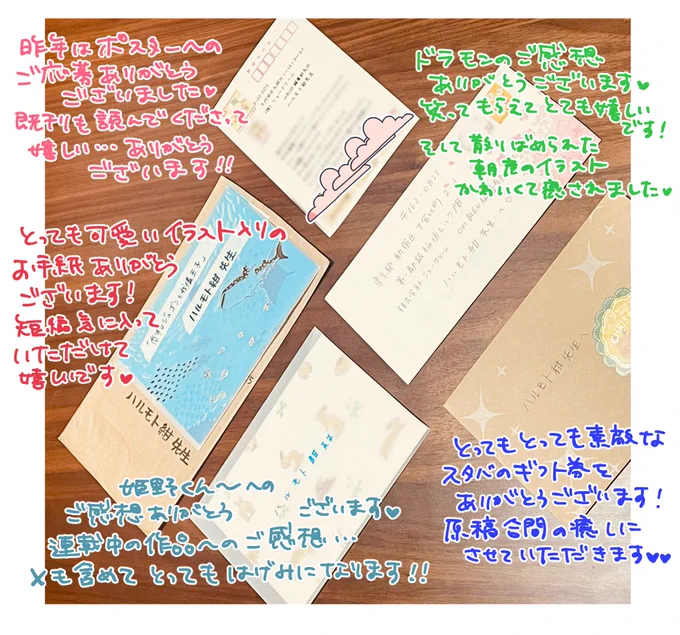 昨年はポスターへの
ご応募ありがとう
ございました♥
既刊も読んでくださって
嬉しい…ありがとう
ございます!!
ドラモンのご感想
ありがとうございます♥
笑ってもらえてとても嬉しい
です!
そして散りばめられた
朝虎のイラスト
かわいくて癒されました♥
とっても可愛いイラスト入りの
お手紙ありがとう
ございます!
短編気に入って
いただけて
嬉しいです♥
ハルモト紺 先生
ハルモト紺 先生
ハルモト紺 先生へ
ハルモト紺 先生へ
ハルモト 紺 先生
姫野くん〜への
ご感想ありがとう ございます♥
連載中の作品へのご感想…
Xも含めてとってもはげみになります!!
とってもとっても素敵な
スタバのギフト券を
ありがとうございます!
原稿合間の癒しに
させていただきます♥♥